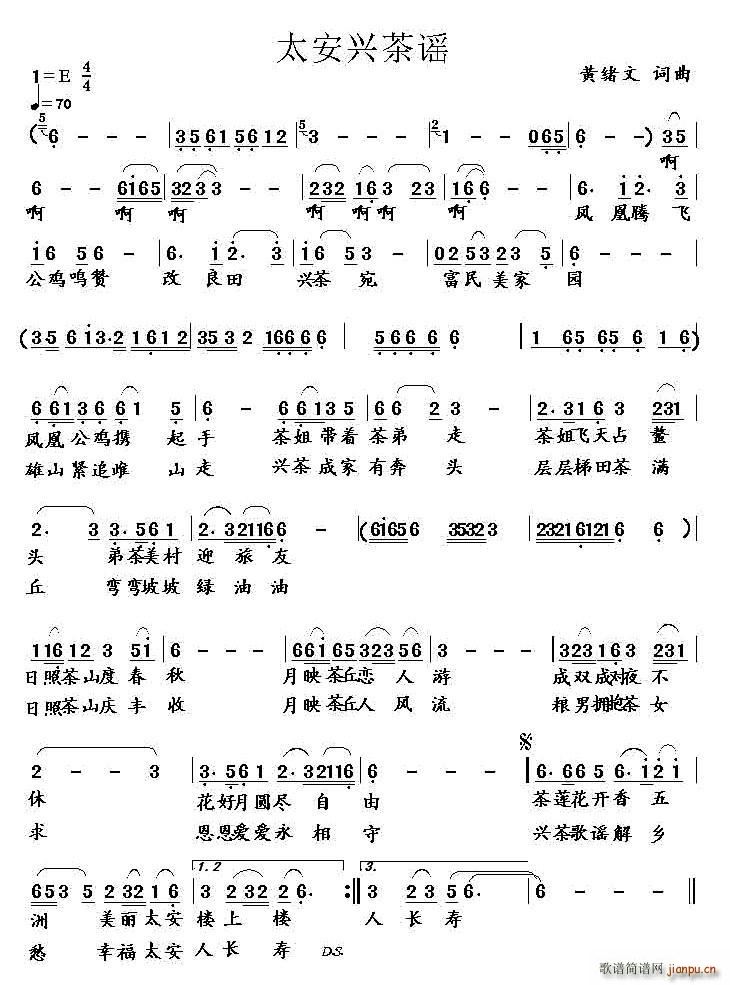 太安兴茶谣
1=E 4/4
黄绪文 词曲
♩=70
(6 - - - | 3561 5612 | 3 - - - | 1 - - 065 | 6 - - ) 35 |
啊
6 - - 6165 | 3233 - - - | 232 163 23 | 166 - - - | 6. 12. 3 |
啊 啊 啊 啊 啊 啊 啊 凤 凰腾 飞
16 56 - - | 6. 12. 3 | 16 53 - - | 0253 235 | 6 - - - |
公鸡鸣赞 改 良田 兴茶 宛 富民美家 园
(35 613.2 1612 | 3532 16666 | 5666 6 - | 1 65 656 16) |
66136 61 5 | 6 - 66135 | 66 2 3 - | 2.316 6 231 |
凤凰公鸡携 起 手 茶姐带着茶弟 走 茶姐飞天占 鳌
雄山紧追雌 山 走 兴茶成家有奔 头 层层梯田茶 满
2. 3 3.561 | 2.321166 - | (61656 35323 | 23216121 6 6) |
头 弟茶美村 迎 旅 友
丘 弯弯坡坡 绿 油 油
11612 3 51 | 6 - - - | 661 65 323 56 | 3 - - - | 323163 231 |
日照茶山度 春 秋 月映茶丘恋 人 游 成双成对夜 不
日照茶山庆 丰 收 月映茶丘人 风 流 粮男拥抱茶 女
2 - - 3 | 3.561 2.32116 | 6 - - - | 6.665 6.121 |
休 花好月圆尽 自 由 茶莲花开香 五
求 恩恩爱爱永 相 守 兴茶歌谣解 乡
1.2 3.
653 5 232 16 | 3 232 26. :| 3 323 56 - | 6 - - - |
洲 美丽太安 楼上 楼 人长 寿
愁 幸福太安 人长 寿 D.S.
歌谱简谱网
jianpu.cn